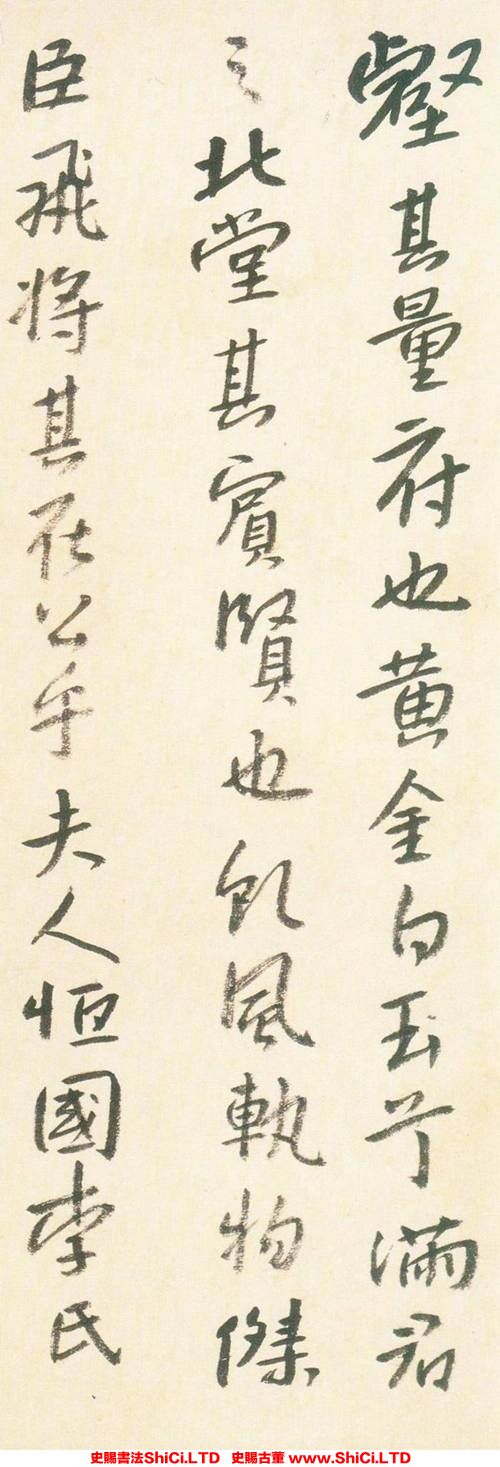 壑其量府也黄金白玉兮滿君
之北堂其賓賢也飢風執物傑
臣飛将其在公乎夫人恒國李氏
史賜書法ShiCi.LTD 史賜古董 www.ShiCi.LTD